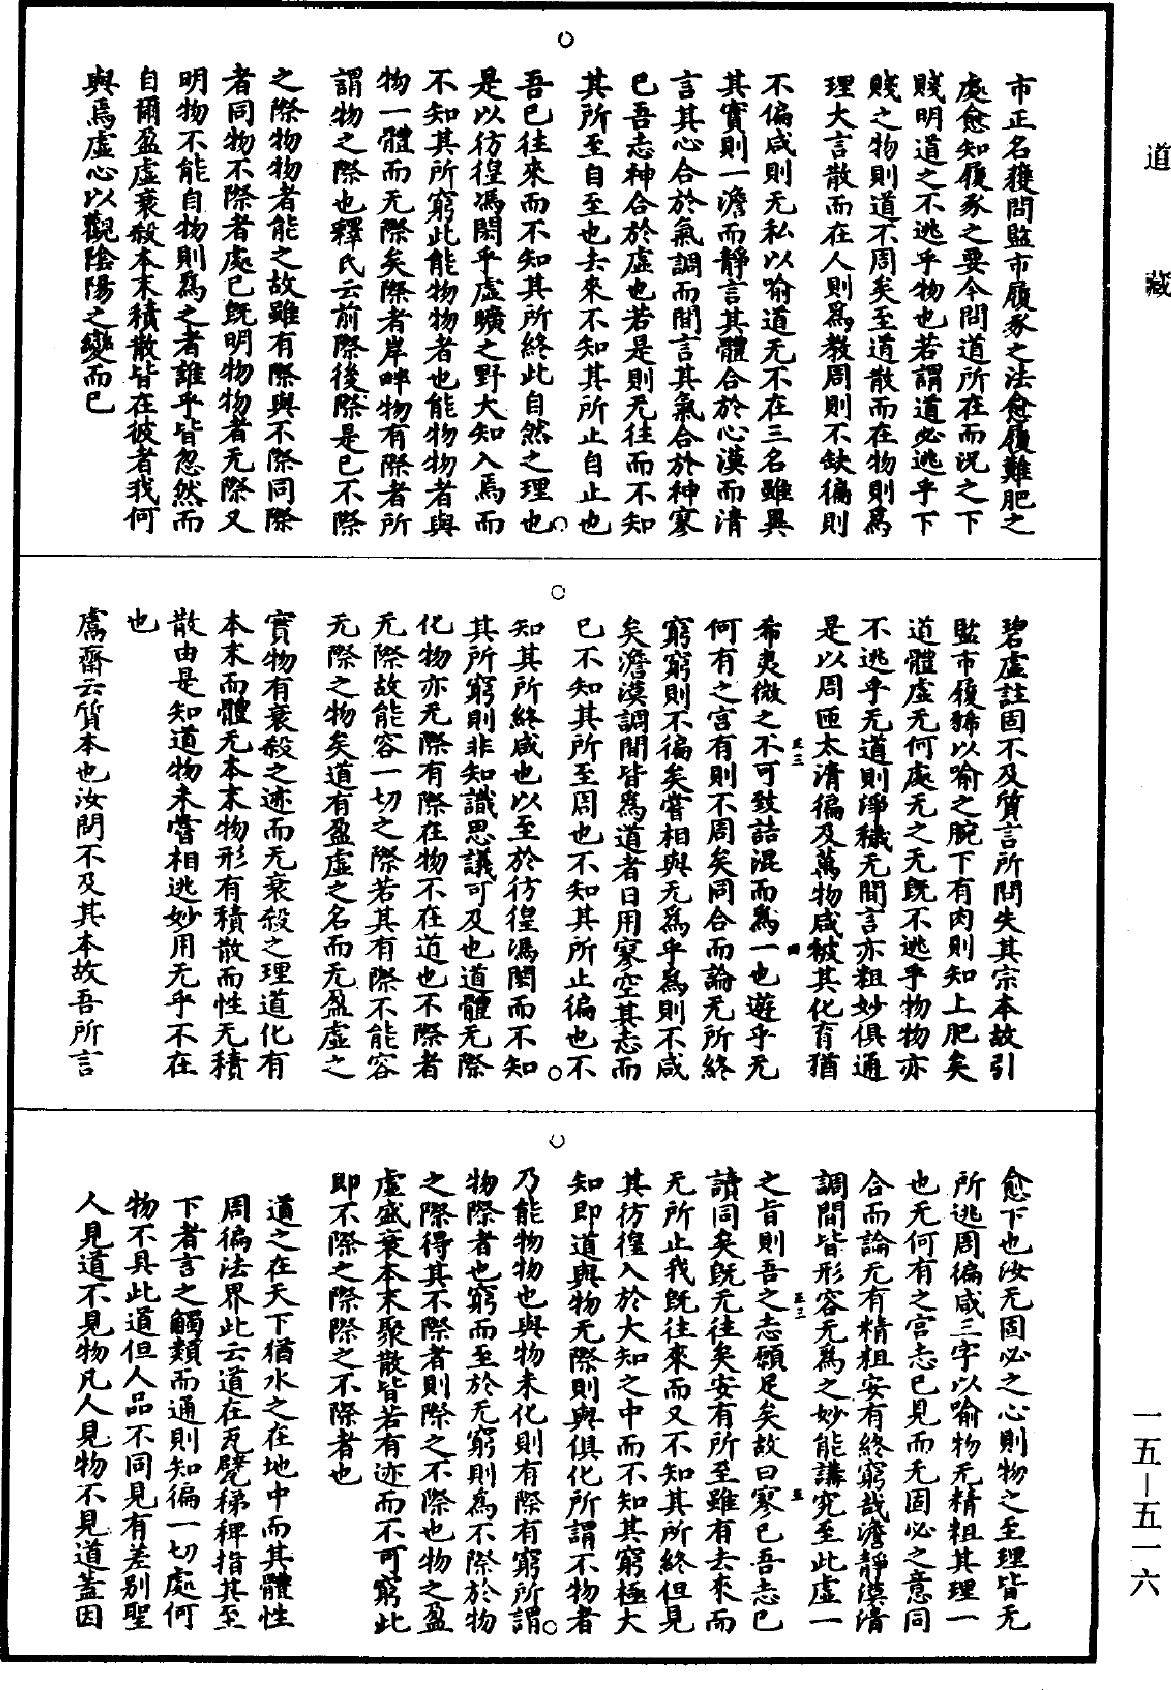 道藏
市正名獲問監市履豕之法愈履難肥之
處愈知履豕之要今問道所在而況之下
賤明道之不逃乎物也若謂道必逃乎下
賤之物則道不周矣至道散而在物則爲
理大言散而在人則爲教周則不缺徧則
不偏咸則无私以喻道无不在三名雖異
其實則一澹而靜言其體合於心漠而清
言其心合於氣調而閒言其氣合於神寥
已吾志神合於虛也若是則无往而不知
其所至自至也去來不知其所止自止也
吾已往來而不知其所終此自然之理也
是以彷徨馮閎乎虛曠之野大知入焉而
不知其所窮此能物物者也能物物者與
物一體而无際矣際者岸畔物有際者所
謂物之際也釋氏云前際後際是已不際
之際物物者能之故雖有際與不際同際
者同物不際者處已旣明物物者无際又
明物不能自物則爲之者誰乎皆忽然而
自爾盈虛衰殺本末積散皆在彼者我何
與焉虛心以觀陰陽之變而已
碧虛註固不及質言所問失其宗本故引
監市履狶以喻之腕下有肉則知上肥矣
道體虛无何處无之无旣不逃乎物物亦
不逃乎无道則淨穢无間言亦粗妙俱通
是以周匝太清徧及萬物咸被其化育猶
希夷微之不可致詰混而爲一也遊乎无
何有之宮有則不周矣同合而論无所終
窮窮則不徧矣嘗相與无爲乎爲則不咸
矣澹漠調閒皆爲道者日用寥空其志而
已不知其所至周也不知其所止徧也不
知其所終咸也以至於彷徨馮閎而不知
其所窮則非知識思議可及也道體无際
化物亦无際有際在物不在道也不際者
无際故能容一切之際若其有際不能容
无際之物矣道有盈虛之名而无盈虛之
實物有衰殺之迹而无衰殺之理道化有
本末而體无本末物形有積散而性无積
散由是知道物未嘗相逃妙用无乎不在
也
鬳齋云質本也汝問不及其本故吾所言
愈下也汝无固必之心則物之至理皆无
所逃周徧咸三字以喻物无精粗其理一
也无何有之宮志已見而无固必之意同
合而論无有精粗安有終窮哉澹靜漠清
調閒皆形容无爲之妙能講究至此虛一
之旨則吾之志願足矣故曰寥已吾志已
讀同矣旣无往矣安有所至雖有去來而
无所止我旣往來而又不知其所終但見
其彷徨入於大知之中而不知其窮極大
知即道與物无際則與俱化所謂不物者
乃能物物也與物未化則有際有窮所謂
物際者也窮而至於无窮則爲不際於物
之際得其不際者則際之不際也物之盈
虛盛衰本末聚散皆若有迹而不可窮此
即不際之際際之不際者也
道之在天下猶水之在地中而其體性
周徧法界此云道在瓦甓稊稗指其至
下者言之觸類而通則知徧一切處何
物不具此道但人品不同見有差別聖
人見道不見物凡人見物不見道蓋因
一五—五一六